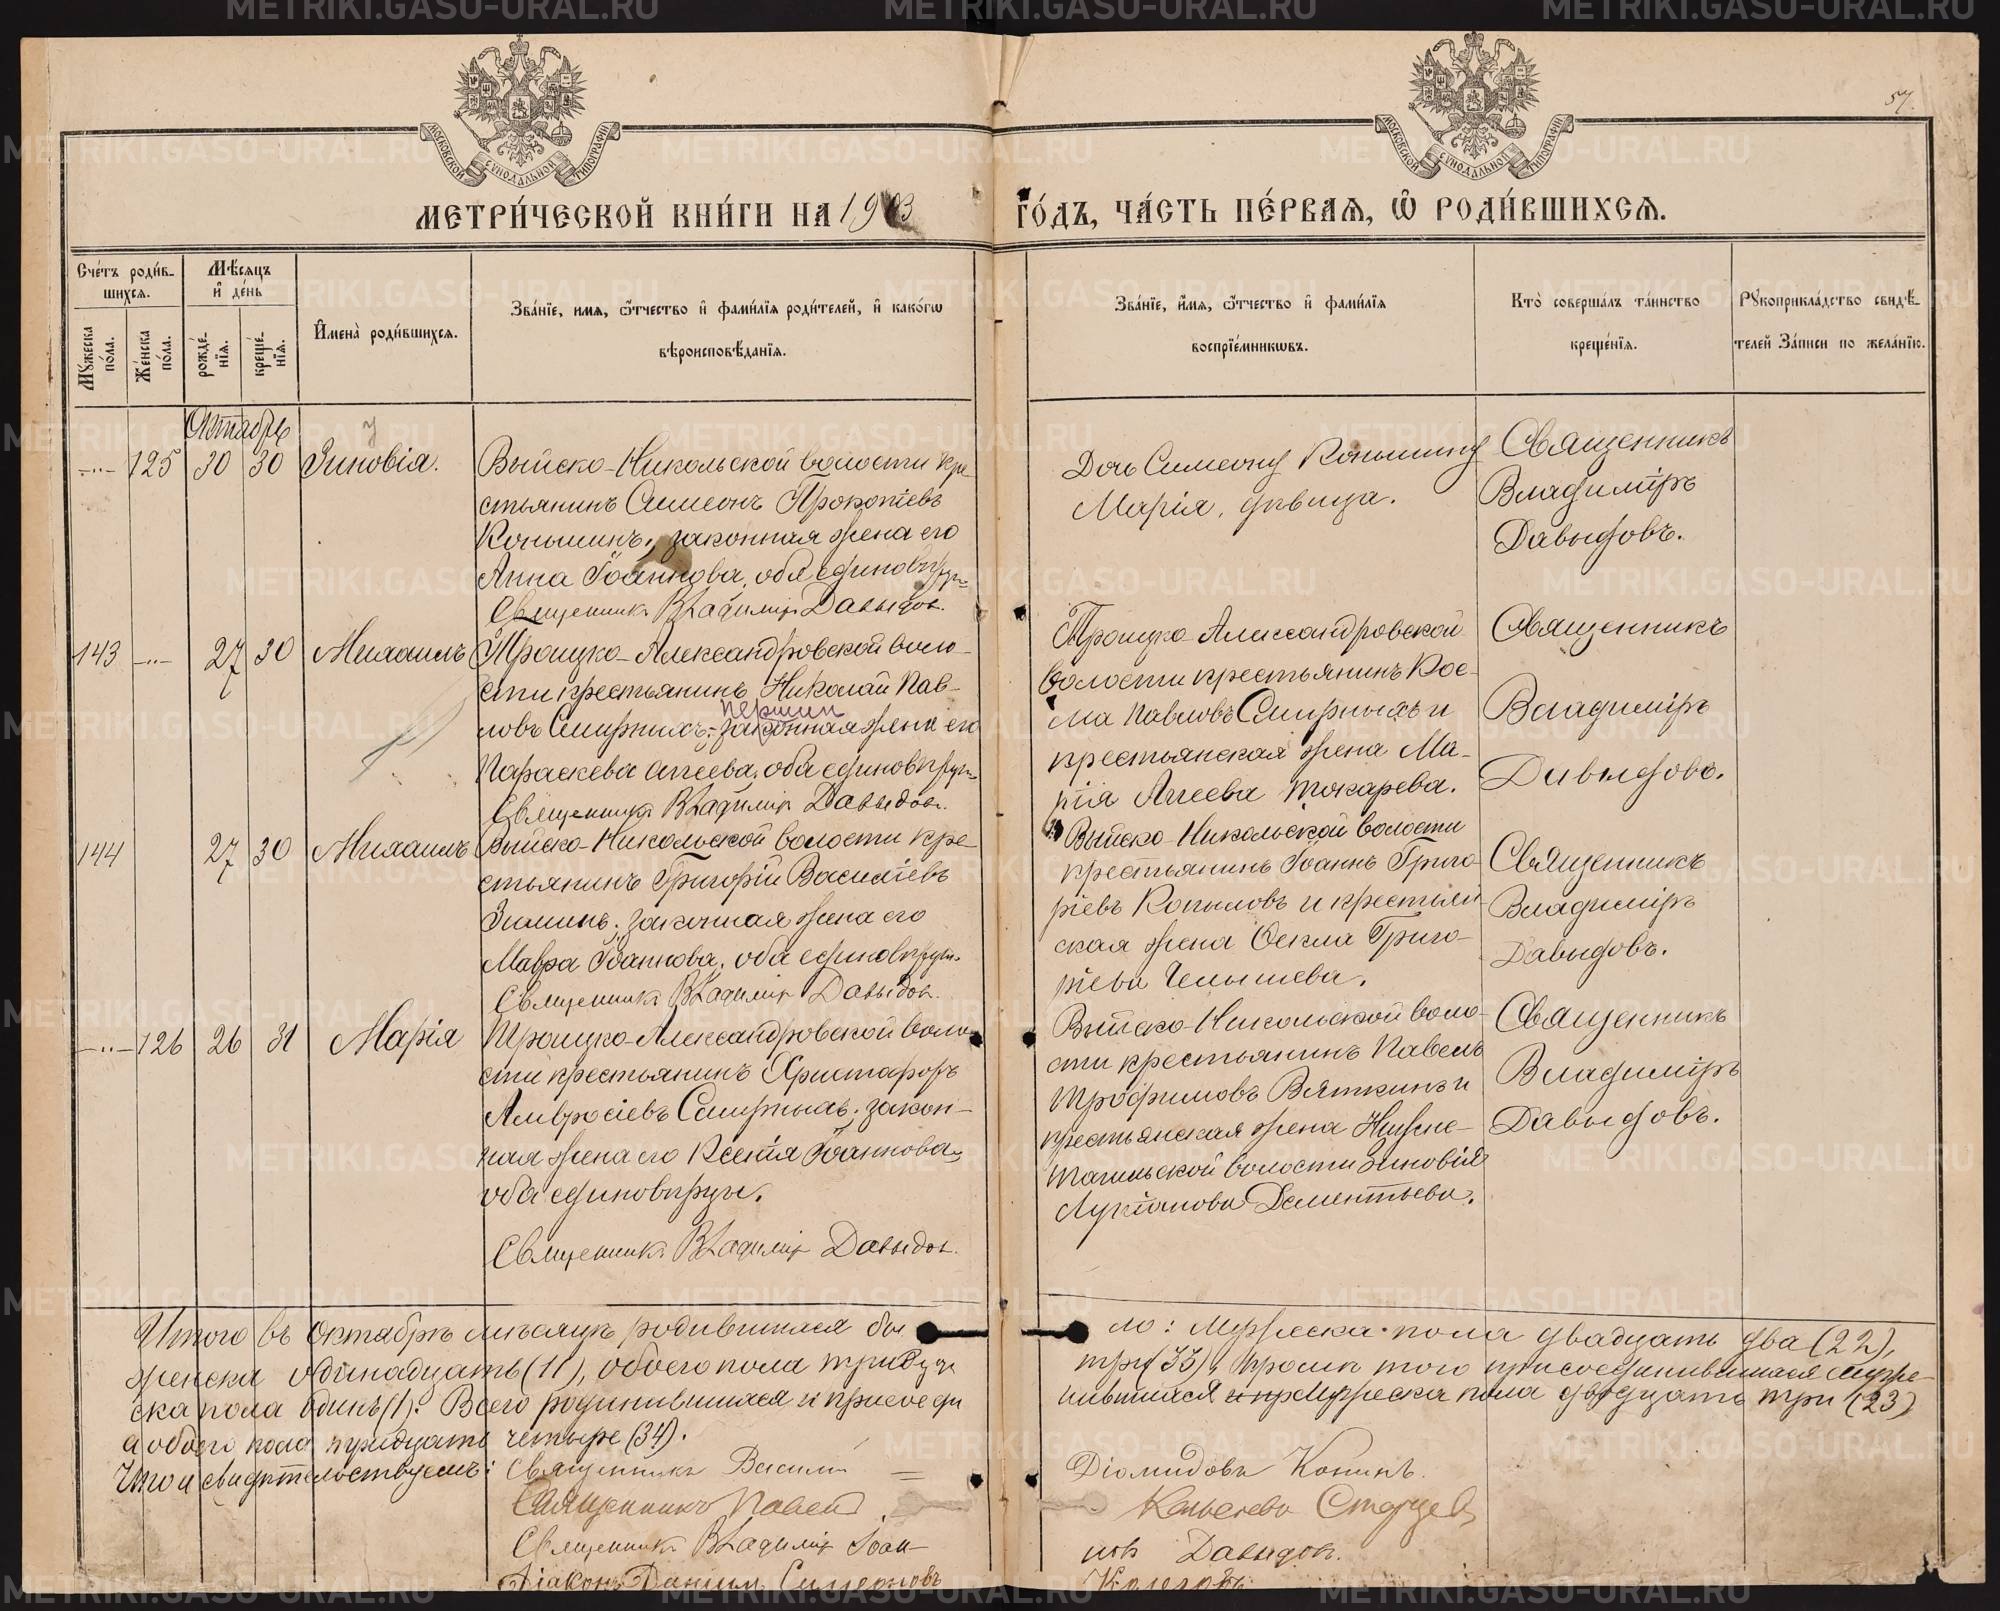 57.
МОСКОВСКОЙ СѴНОДАЛЬНОЙ ТИПОГРАФІИ
МОСКОВСКОЙ СѴНОДАЛЬНОЙ ТИПОГРАФІИ
МЕТРИ́ЧЕСКОЙ КНИ́ГИ НА 1903 ГО́ДЪ, ЧА́СТЬ ПЕ́РВАѦ, Ѽ РОДИ́ВШИХСѦ.
Сче́тъ роди́в-
шихсѧ.
Мѣ́сѧцъ
и҆ де́нь
Мꙋ́жеска
по́ла.
Же́нска
по́ла.
рожде́-
нїѧ.
креще́-
нїѧ.
И҆мена̀ роди́вшихсѧ.
Зва́нїе, имѧ, ѻ҆́тчество и҆ фами́лїѧ роди́телей, и҆ како́гѡ
вѣроисповѣ́данїѧ.
Зва́нїе, и҆́мѧ, ѻ҆́тчество и҆ фами́лїѧ
воспрїе́мникѡвъ.
Кто̀ соверша́лъ та́инство
креще́нїѧ.
Рꙋкоприкла́дство свидѣ́-
телей За́писи по жела́нїю.
Октябрь
-..- 125 30 30 Зиновія.
Выйско-Никольской волости кре-
стьянинъ Симеонъ Прокопіевъ
Коньшинъ, законная жена его
Анна Іоаннова, оба единовѣрцы
Священникъ Владиміръ Давыдовъ.
Дочь Симеону Коньшину
Марія, дѣвица.
Священникъ
Владиміръ
Давыдовъ.
143 -..- 27 30 Михаилъ
Троицко-Александровской воло-
сти крестьянинъ Николай Пав-
ловъ Смирныхъ; законная жена его
Параскева Агеева, оба единовѣрцы.
Священникъ Владиміръ Давыдовъ.
Троицко-Александровской
волости крестьянинъ Кос-
ма Павловъ Смирныхъ и
крестьянская жена Ма-
рія Агеева Токарева.
Священникъ
Владиміръ
Давыдовъ.
144 27 30 Михаилъ
Выйско-Никольской волости кре-
стьянинъ Григорій Василіевъ
Зиминъ; законная жена его
Мавра Іоаннова, оба единовѣрцы.
Священникъ Владиміръ Давыдовъ.
Выйско-Никольской волости
крестьянинъ Іоаннъ Григо-
ріевъ Копыловъ и крестьян-
ская жена Ѳекла Григо-
ріева Челышева.
Священникъ
Владиміръ
Давыдовъ.
-..- 126 26 31 Марія
Троицко-Александровской воло-
сти крестьянинъ Христафоръ
Амвросіевъ Смирныхъ; закон-
ная жена его Ксенія Іоаннова,
оба единовѣрцы.
Священникъ Владиміръ Давыдовъ.
Выйско-Никольской воло-
сти крестьянинъ Павелъ
Трофимовъ Вяткинъ и
крестьянская жена Нижне-
тагильской волости Зиновія
Лукіанова Дементьева.
Священникъ
Владиміръ
Давыдовъ.
Итого въ Октябрѣ мѣсяцѣ родившихся бы ло: Мужеска пола двадцать два (22),
женска одинадцать (11), обоего пола тридца три (33), кромѣ того присоединившихся муже-
ска пола одинъ (1). Всего родившихся и присоеди нившихся мужеска пола двадцать три (23)
а обоего пола тридцать четыре (34).
Что и свидѣтельствуемъ: Священникъ Васили Діомидовъ Конинъ.
Священникъ Павелъ Старцевъ
Священникъ Владиміръ Іоан новъ Давыдовъ.
Діаконъ
METRIKI.GASO-URAL.RU